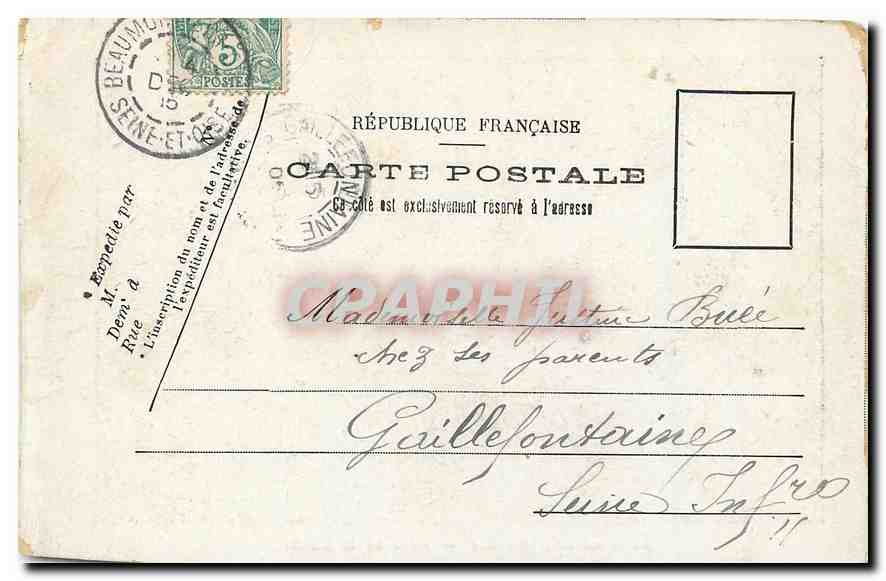 BEAUMO
SEINE-ET-OISE
5
POSTES
N° de
RÉPUBLIQUE FRANÇAISE
CARTE POSTALE
Ce côté est exclusivement réservé à l'adresse
GAILLEFONTAINE
Expédie par
M.
Dem' à
Rue
L'inscription du nom et de l'adresse de
l'expéditeur est facultative.
CPAPHIL
Mademoiselle Justine Bulé
chez ses parents
Gaillefontaine
Seine Infre